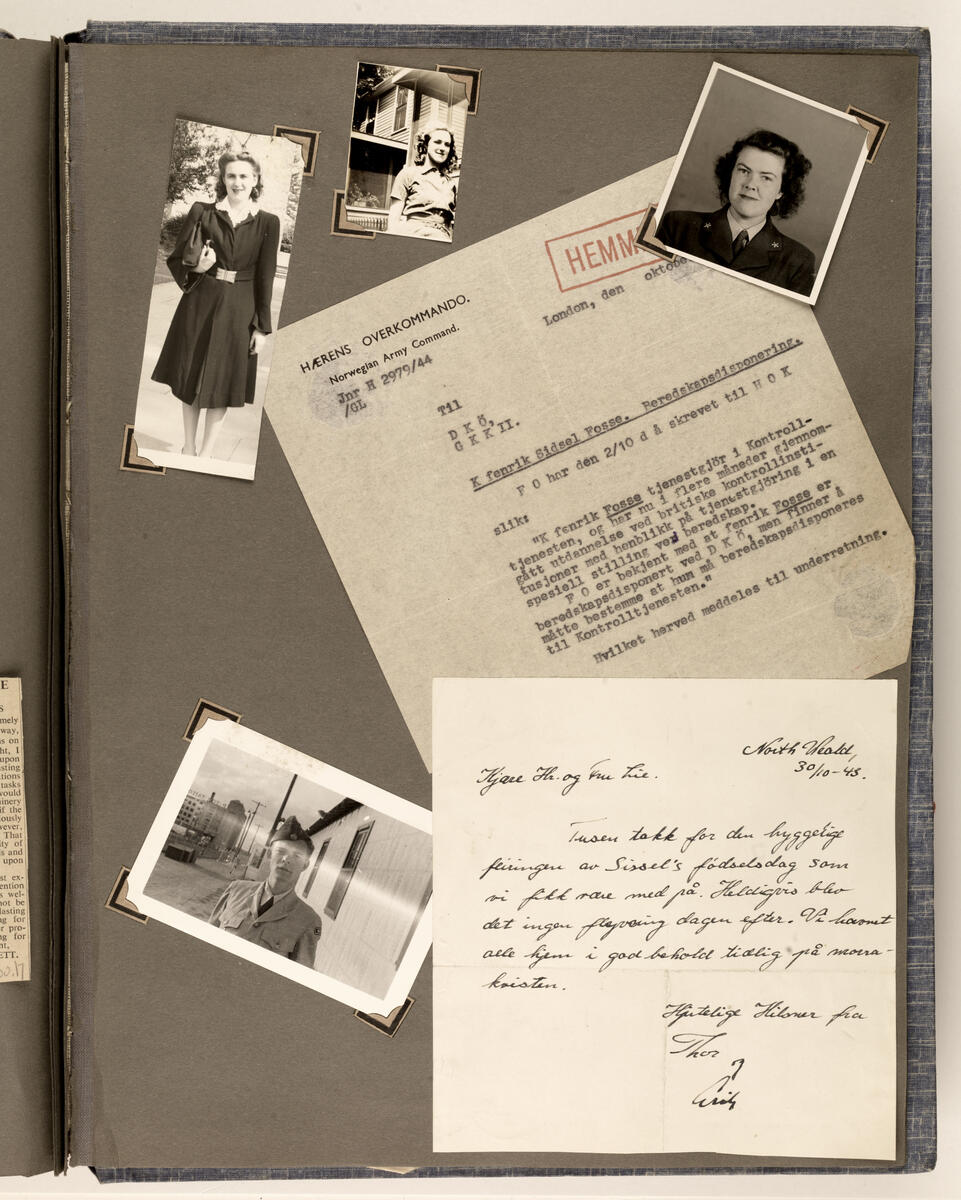 HEMM
London, den oktobe
HÆRENS OVERKOMMANDO.
Norwegian Army Command.
Jnr H 2979/44
/GL
Til
D K Ö,
G K K II.
K fenrik Sidsel Fosse. Beredskapsdisponering.
F O har den 2/10 d å skrevet til H O K
slik:
"K fenrik Fosse tjenestgjör i Kontroll-
tjenesten, og har nu i flere måneder gjennom-
gått utdannelse ved britiske kontrollinsti-
tusjoner med henblikk på tjenestgjöring i en
spesiell stilling ved beredskap.
F O er bekjent med at fenrik Fosse er
beredskapsdisponert ved D K Ö, men finner å
måtte bestemme at hun må beredskapsdisponeres
til Kontrolltjenesten."
Hvilket herved meddeles til underretning.
North Weald,
30/10-43.
Kjære Hr. og Fru Lie.
Tusen takk for den hyggelige
feiringen av Sissel's fødselsdag som
vi fikk være med på. Heldigvis blev
det ingen flyvning dagen efter. Vi havnet
alle hjem i god behold tidlig på morra-
kvisten.
Hjertelige Hilsner fra
Thor
E
S
mely
way,
ns on
ht, I
upon
asting
ations
tasks
would
inery
if the
iously
wever,
That
ity of
ls and
upon
st ex-
ention
s wel-
not be
lasting
ng for
r pro-
ng for
nt,
ETT.